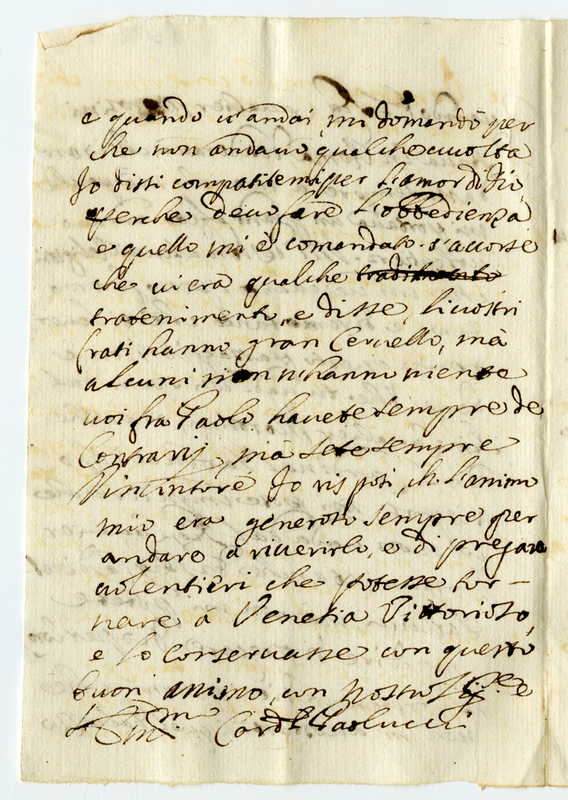 e quando u'andai mi domandò per
che non andauo qualche uuolta
Io dissi compatitemi per l'amor di Dio
perche deuo fare l'obbedienza
e quello mi è comandato. s'accorse
che ui era qualche tradimento
tratenimento, e disse, li uostri
frati hanno gran Ceruello, mà
alcuni non n'hanno niente
uoi fra Paolo hauete sempre de
Contrarij, mà sete sempre
Vincitore Io risposi, ch l'animo
mio era generoso sempre per
andare a riuerirlo, e di pregar
uolentieri che potesse tor-
nare à Venetia Vittorioso,
e lo conseruasse con questo
buon animo, con nostro Sig.re e
Em.mo Card.l Paolucci